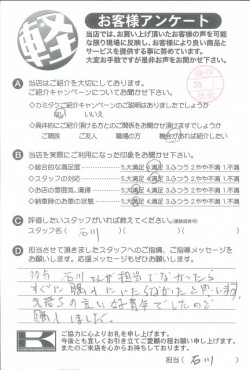 軽
お客様アンケート
当店では、お買い上げ頂いたお客様の声を可能
な限り現場に反映し、お客様により良い商品と
サービスを提供する事に努めています。
大変お手数ですが是非お声をお聞かせ下さい。
A 当店はご紹介を大切にしております。
ご紹介キャンペーンについてお聞かせ下さい。
◇カミタケご紹介キャンペーンのご説明はありましたでしょうか
はい いいえ
◇具体的にご紹介頂ける方とのご関係をお聞かせ頂けますでしょうか
ご親族 ご友人 職場の方 機会があれば
B 当店を実際にご利用になった印象をお聞かせ下さい。
◇総合的な満足度 5.大満足 4.満足 3.ふつう 2.やや不満 1.不満
◇スタッフの対応 5.大満足 4.満足 3.ふつう 2.やや不満 1.不満
◇お店の雰囲気、清掃 5.大満足 4.満足 3.ふつう 2.やや不満 1.不満
◇納車時のお車の状態 5.大満足 4.満足 3.ふつう 2.やや不満 1.不満
C 評価したいスタッフがいれば教えてください。
(スタッフ名) 石川
D 担当させて頂きましたスタッフへのご指摘、ご指導メッセージを
お願いします。応援メッセージもぜひお願いします。
石川さんが担当でなかったら
すぐに購入にいたらなかったと思います。
気持ちの良い好青年でしたので
購入しました。
ご協力に心よりお礼を申し上げます。
今後とも宜しくお引き立てご愛顧の程お願い申し上げます。
またのご来店を心からお待ちしております。
担当( 石川 )